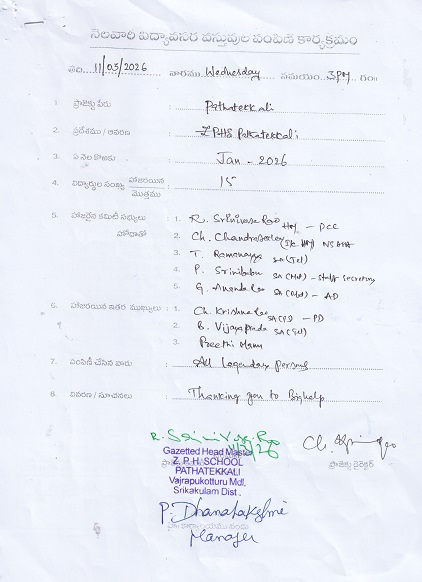 నెలవారి విద్యావసర వస్తువుల పంపిణీ కార్యక్రమం
తేది 11/03/2026 వారము Wednesday సమయం 3PM గం॥
1. ప్రాజెక్టు పేరు : Pathatekkali
2. ప్రదేశము / ఆవరణ : ZPHS Pathatekkali
3. ఏ నెల కొఱకు : Jan - 2026
4. విద్యార్థుల సంఖ్య హాజరయిన / మొత్తము : 15
5. హాజరైన కమిటీ సభ్యులు : 1. R. Srinivasa Rao HM - PCC
హోదాతో 2. Ch. Chandrasekhar
3. T. Ramanayya SA (Tel)
4. P. Srinibabu - Staff Secretary
5. G. Ananda Rao - AD
6. హాజరయిన ఇతర ముఖ్యులు : 1. Ch. Krishna Rao SA (PS) - PD
2. B. Vijaya
3. Preethi
7. పంపిణీ చేసిన వారు : All Legendary persons
8. వివరణ / సూచనలు : Thanking you to Bighelp
Gazetted Head Master
Z. P. H. SCHOOL
PATHATEKKALI
Vajrapukotturu Mdl,
Srikakulam Dist.
ప్రాజెక్టు డైరెక్టర్
Manager